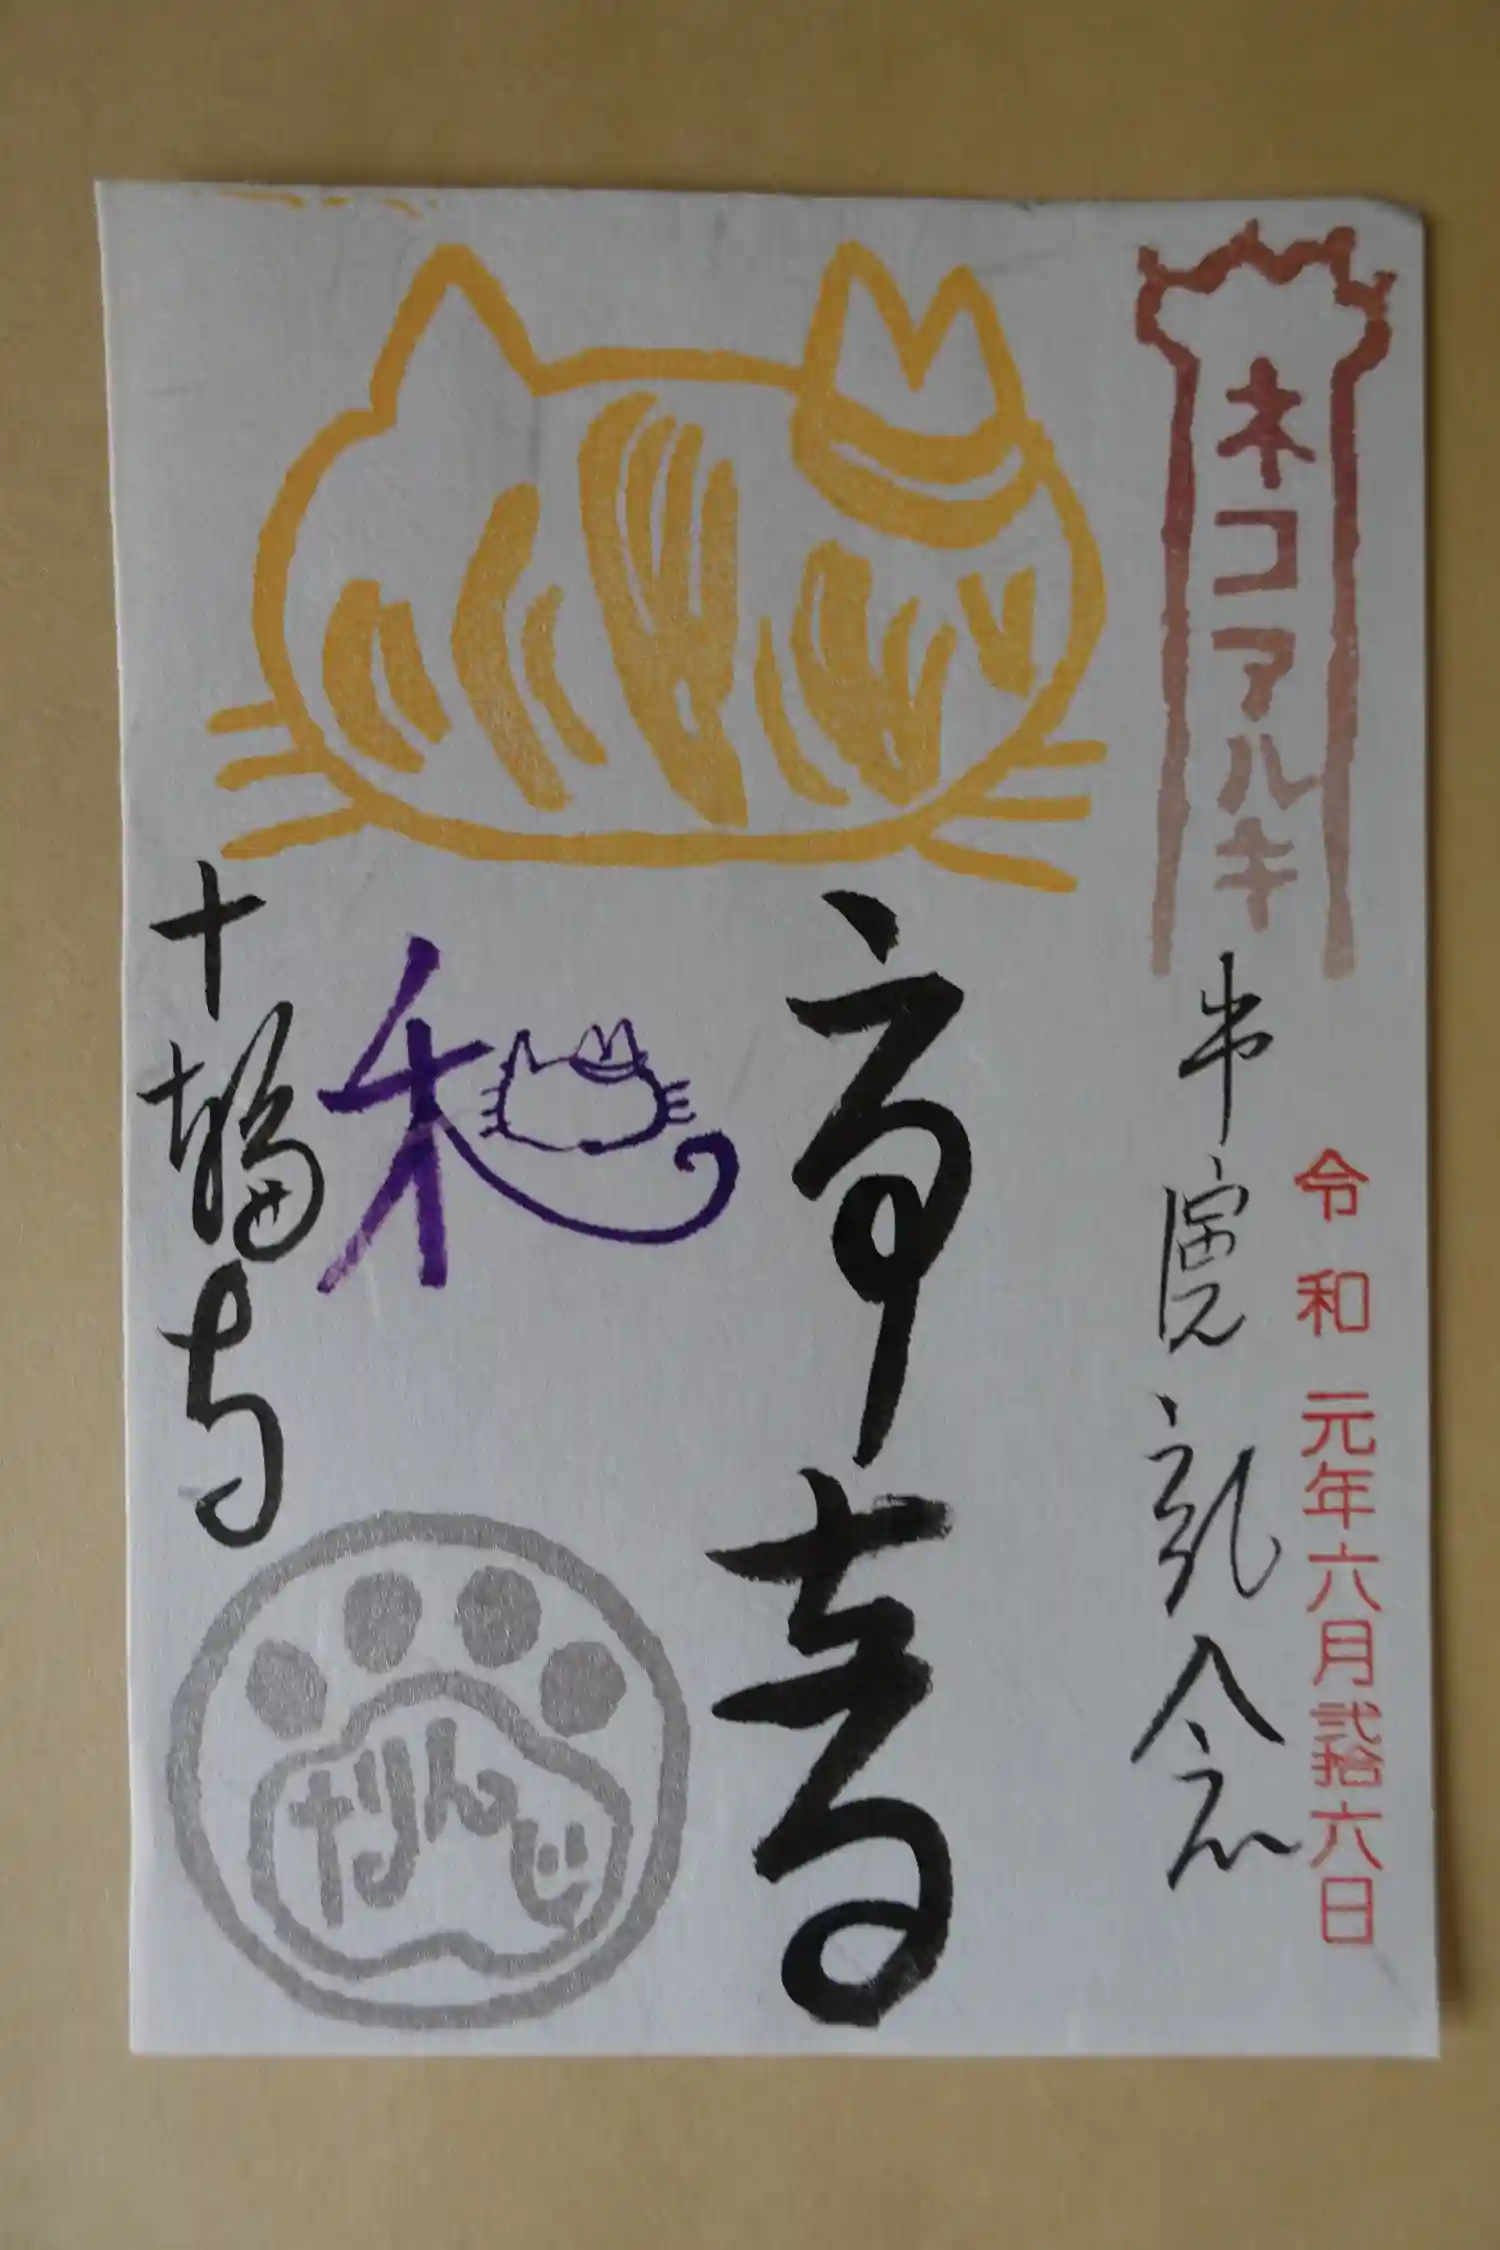 令和元年六月弐拾六日
ネコアルキ
記念
和
十輪寺
十りんじ